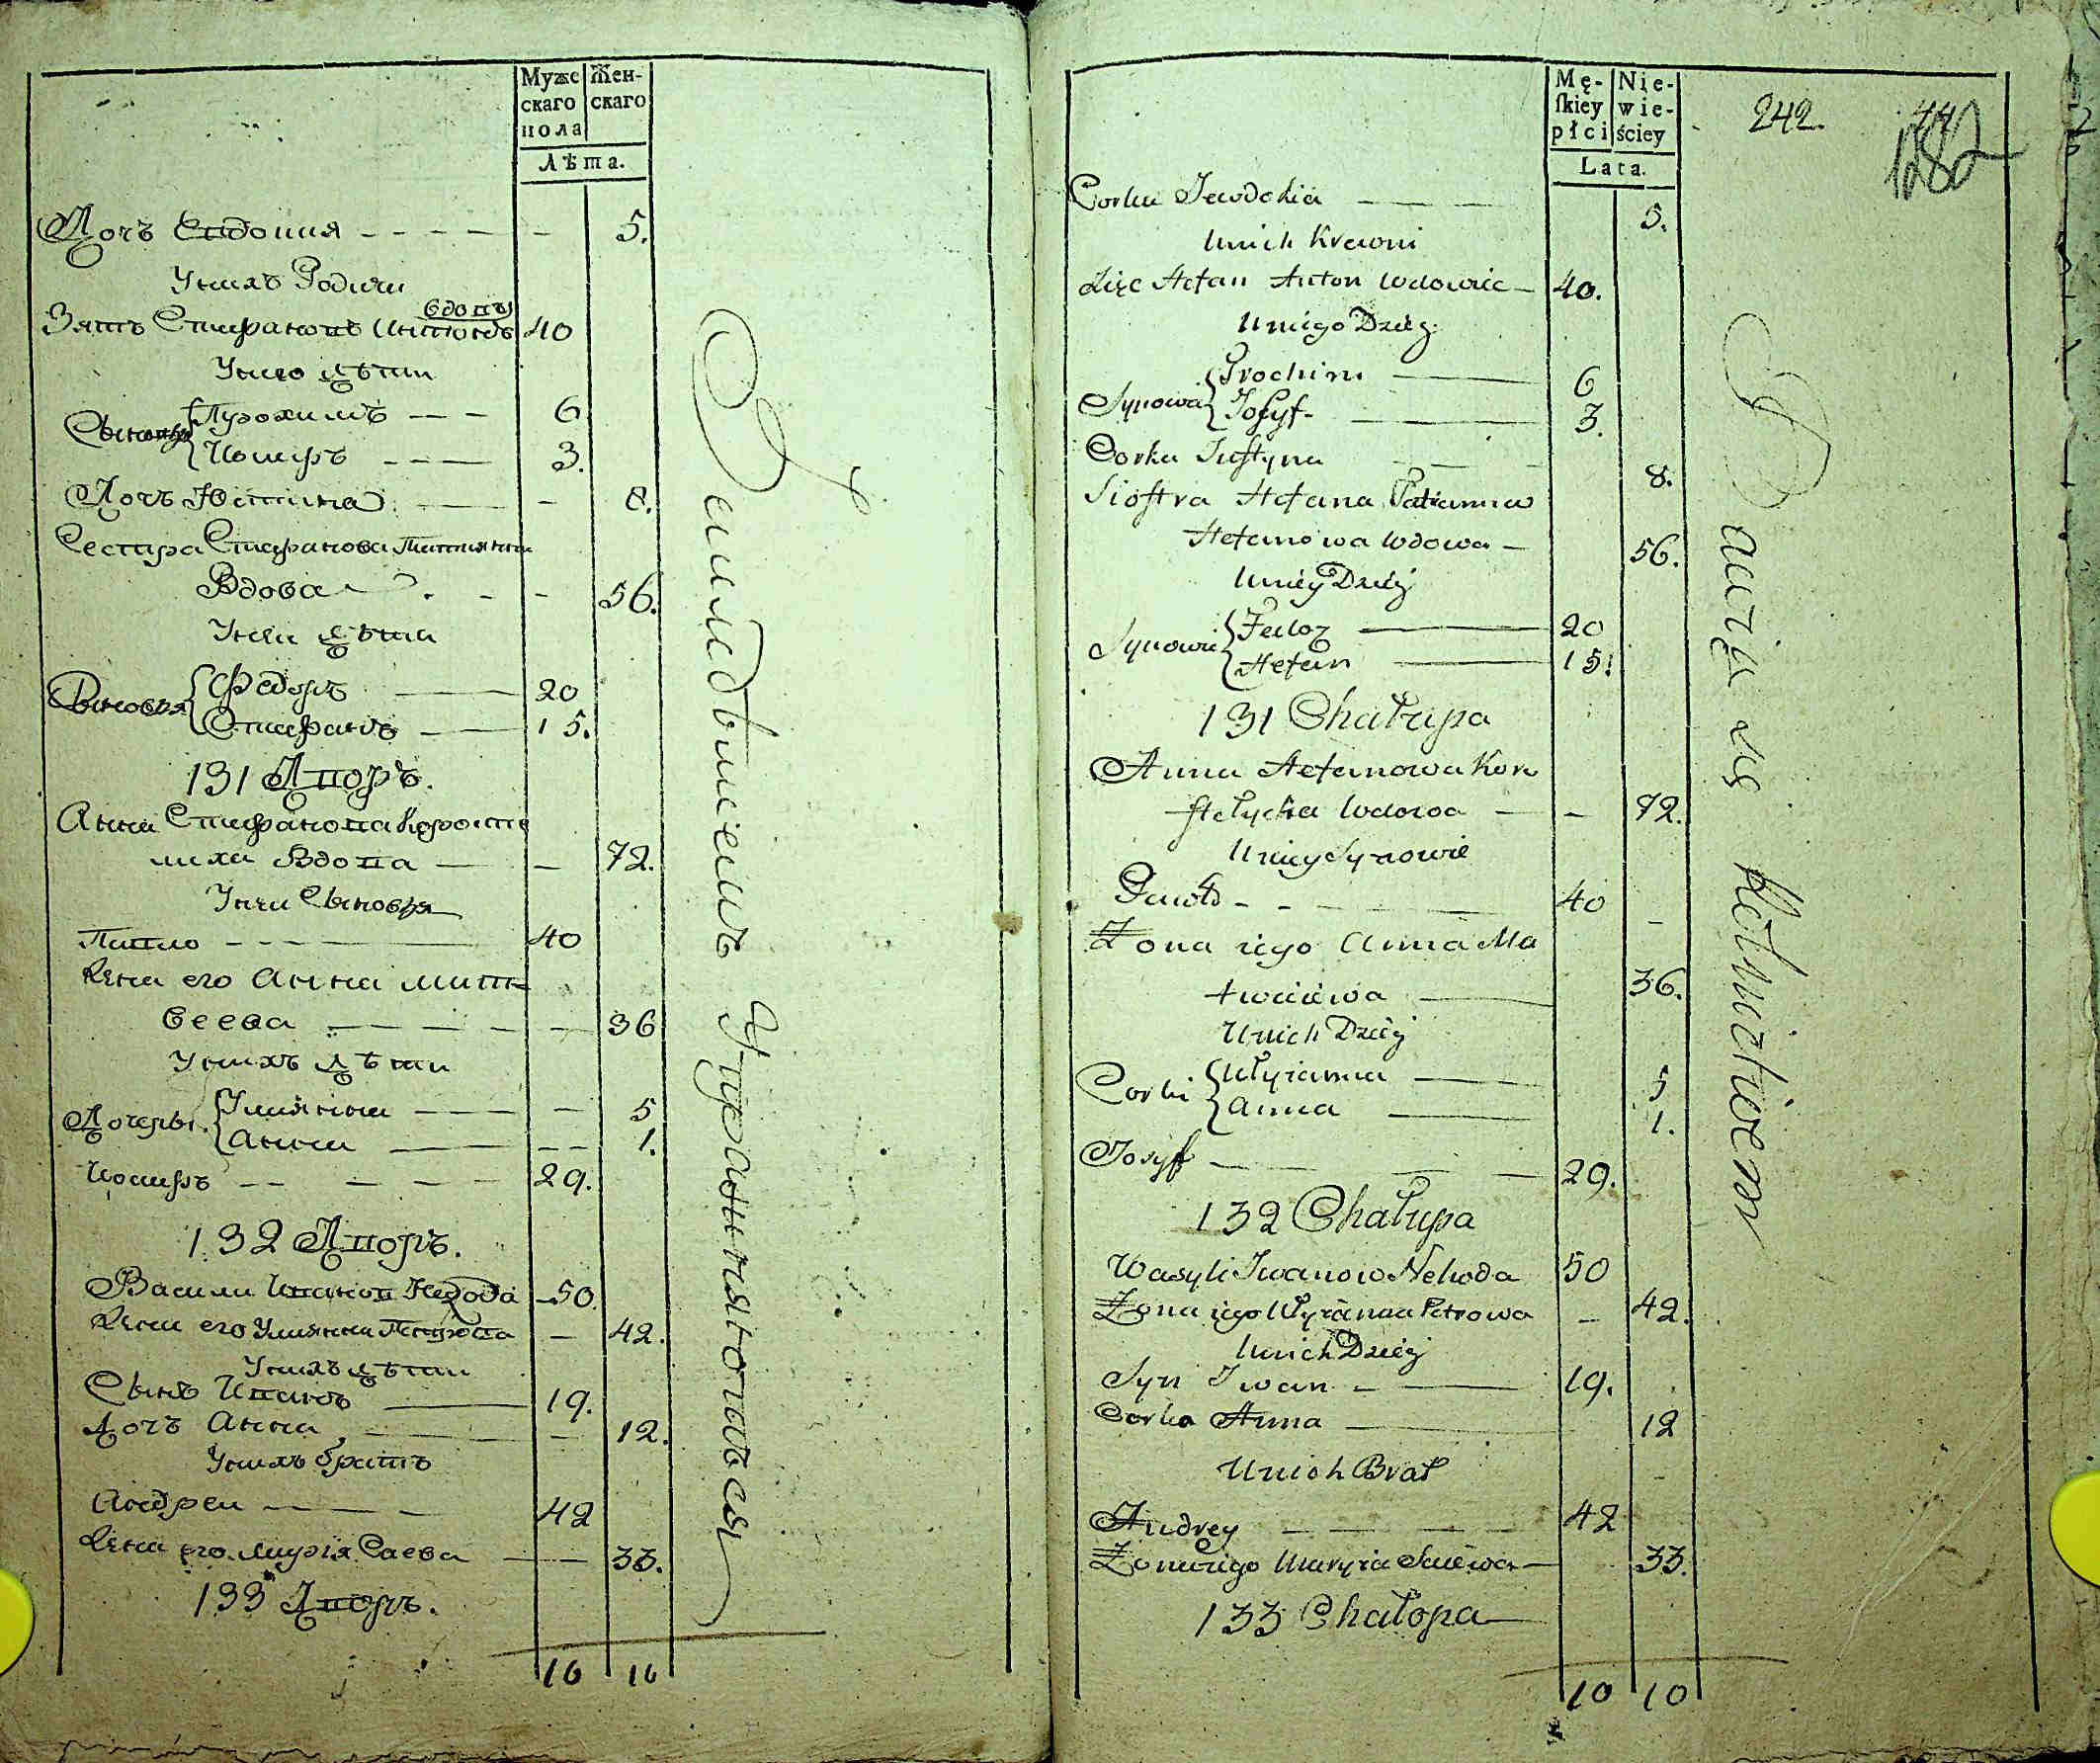 Мужескаго пола
Женскаго
Лѣта.
Дочь Евдокия - - - - - 5.
У нихъ Родичи
вдовъ
Зять Стефановъ Антонъ 40
У него дѣти
Сыновя Прохимъ - - - 6
Иосифъ - - - 3.
Дочъ Юстина - 8.
Сестра Стефанова Татияна
Вдова - 56.
У неи дѣти
Сыновя Федоръ 20
Стефанъ 15.
131 Дворъ.
Анна Стефанова Коросте
лиха Вдова - 72.
У неи Сыновя
Павло - - - 40
Жена его Анна Матв
веева - 36
У нихъ дѣти
Дочеры Улияна - 5
Анна - 1.
Иосифъ - - - 29.
132 Дворъ.
Васили Иванов Негода 50.
Жена его Улияна Петрова - 42.
У нихъ дѣти
Сынъ Иванъ 19.
Дочъ Анна - 12.
У нихъ братъ
Андреи 42
Жена его Мария Саева - 33.
133 Дворъ.
10 10
Męskiey płci
Niewieściey
Lata.
242.
Corka Jewdokia - 5.
U nich Krewni
Zięc Stefan Anton wdowiec - 40.
U niego Dzieci
Synowie Prochim 6
Josyf - 3.
Corka Justyna 8.
Siostra Stefana Tatianna
Stefanowa wdowa - 56.
U niey Dzieci
Synowie Fedor 20
Stefan 15.
131 Chałupa
Anna Stefanowa Koro
stelycha wdowa - 72.
U niey Synowie
Pawło - - 40
Żona iego Anna Ma
twieiewa 36.
U nich Dzieci
Corki Ulyianna 5
Anna 1.
Josyf - 29.
132 Chałupa
Wasyli Iwanow Nehoda 50
Żona iego Ulyianna Petrowa - 42.
U nich Dzieci
Syn Iwan - 19.
Corka Anna 12
U nich Brat
Andrey 42
Żona iego Maryia Saiewa - 33.
133 Chałopa
10 10